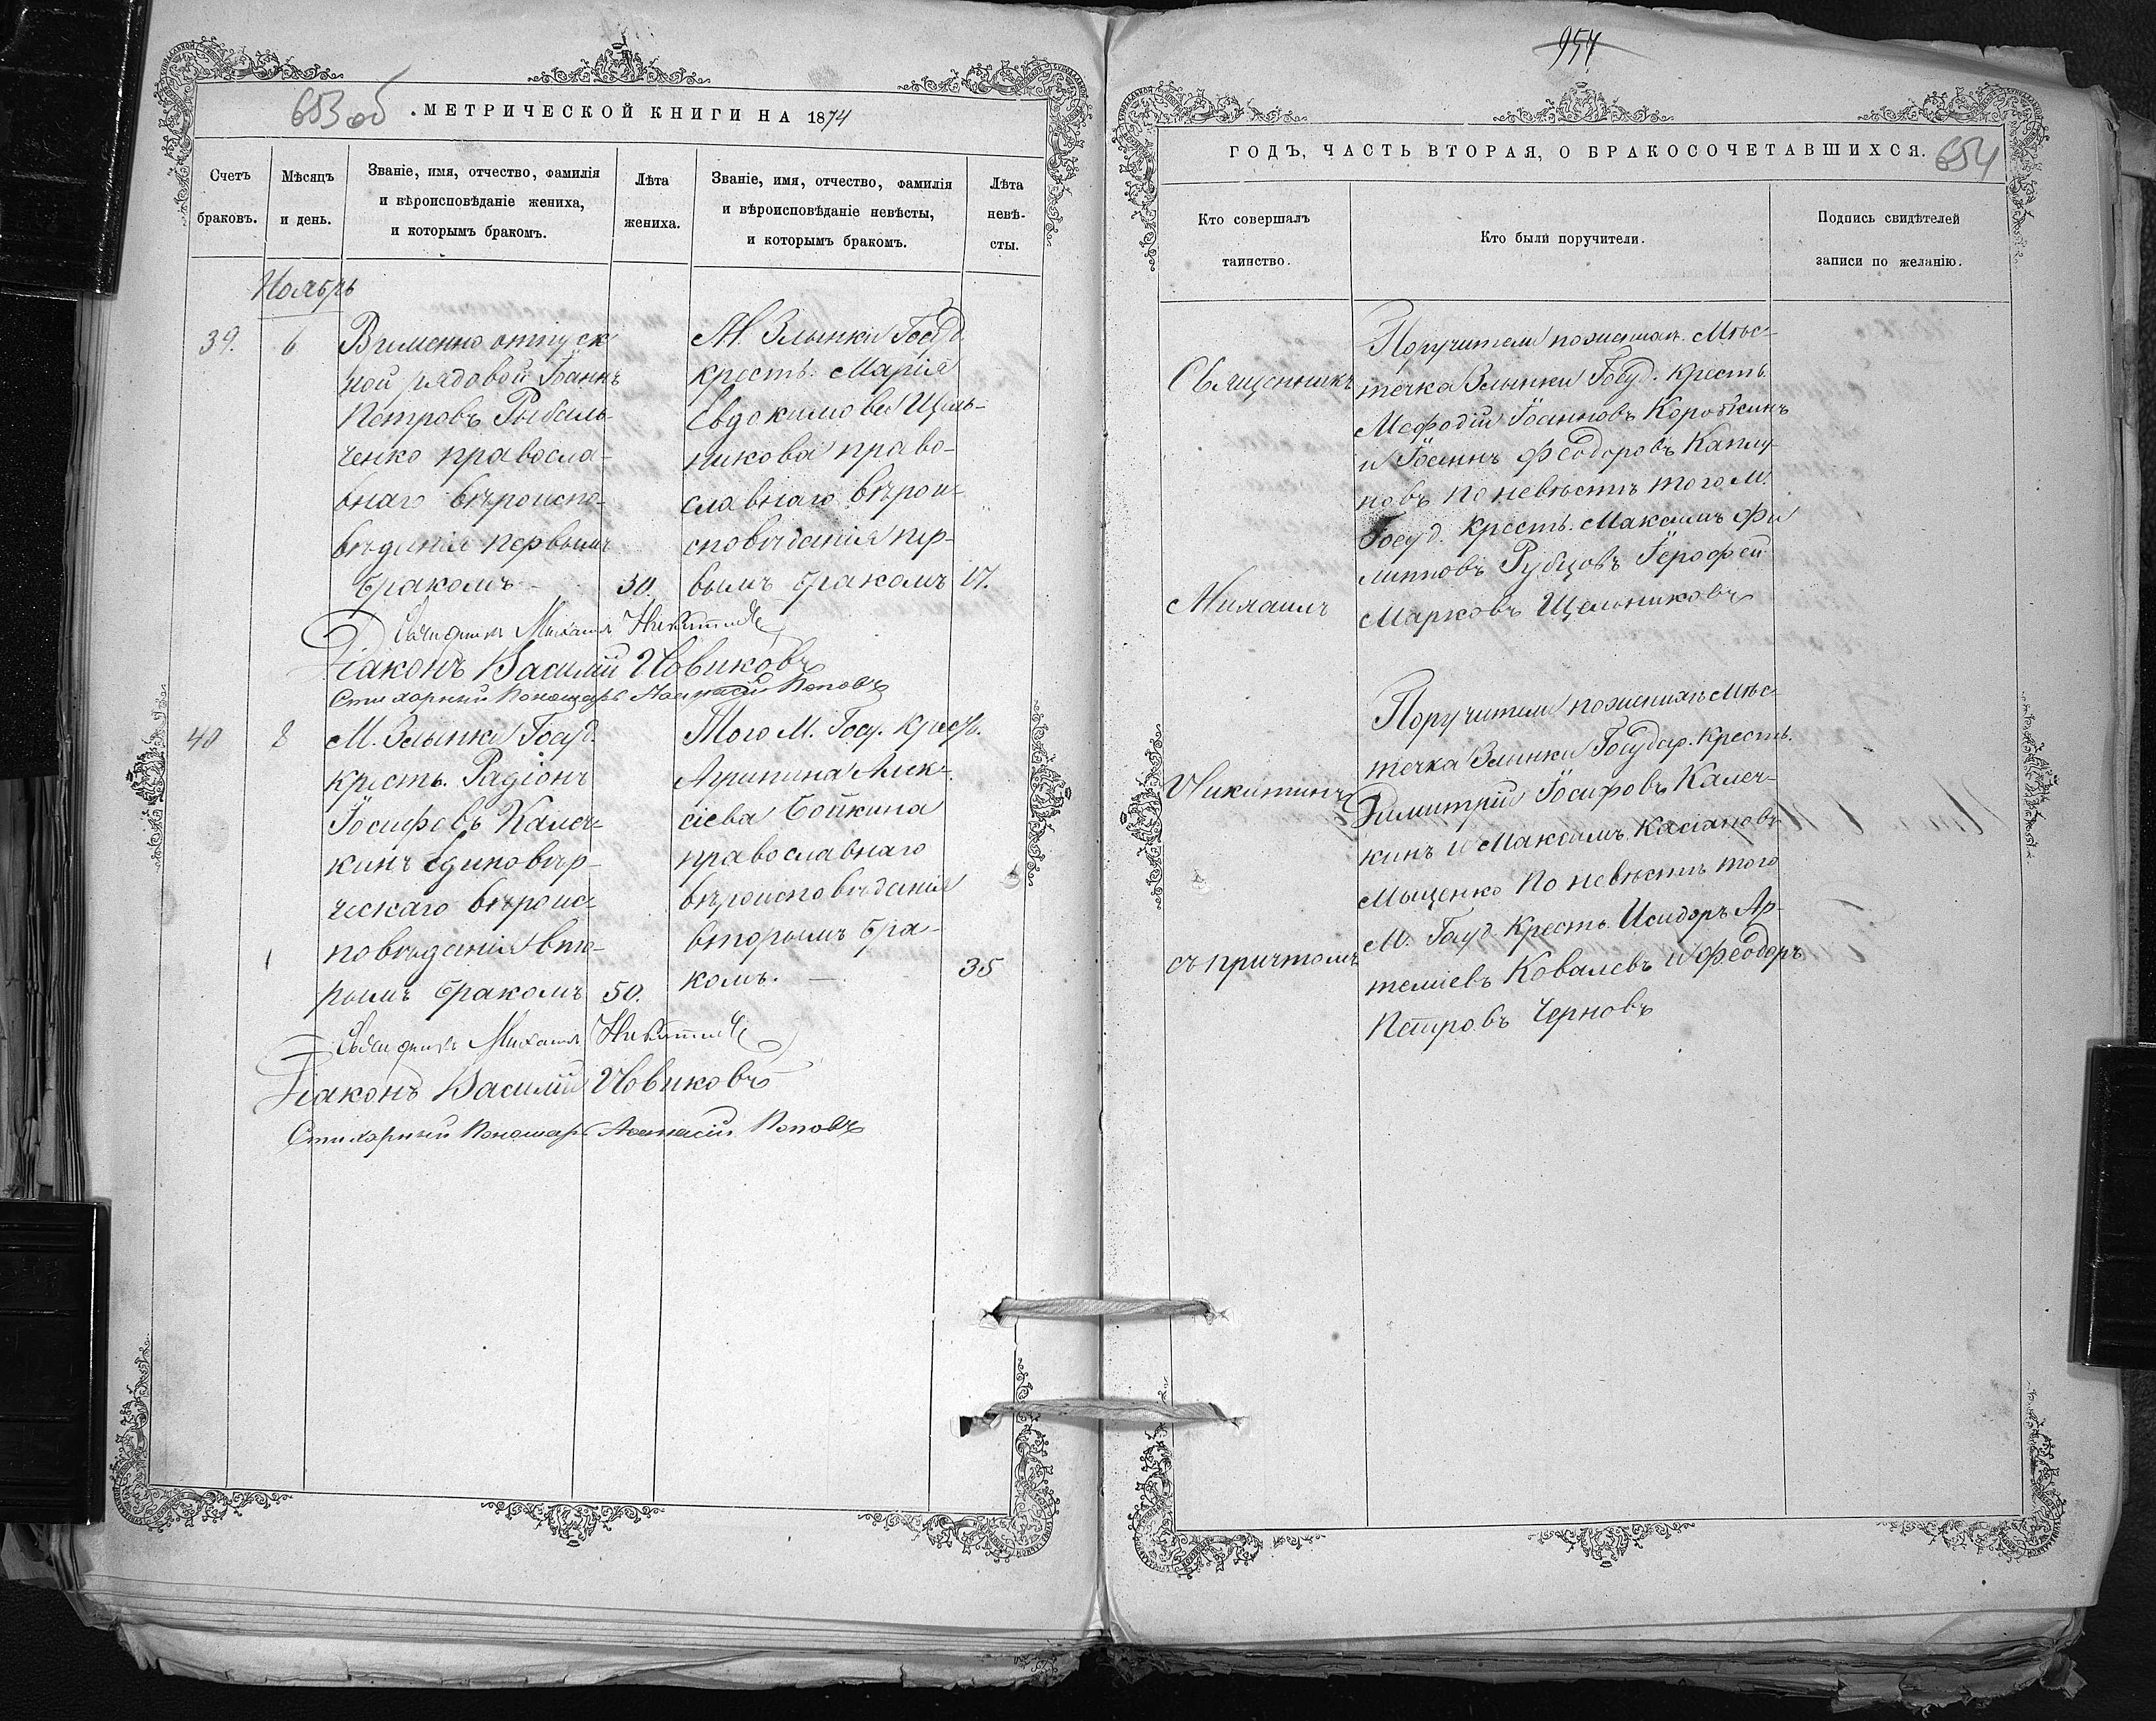 653 об
МЕТРИЧЕСКОЙ КНИГИ НА 1874
Счетъ
браковъ.
Мѣсяцъ
и день.
Званіе, имя, отчество, фамилія
и вѣроисповѣданіе жениха,
и которымъ бракомъ.
Лѣта
жениха.
Званіе, имя, отчество, фамилія
и вѣроисповѣданіе невѣсты,
и которымъ бракомъ.
Лѣта
невѣ-
сты.
Ноябрь
39.
6
Временно отпуск
ной рядовой Іоаннъ
Петровъ Рыбаль-
ченко правосла-
внаго вѣроиспо-
вѣданія первымъ
бракомъ
30.
М. Злынки Госуд.
крестъ. Марія
Евдокимова Щель-
никова право-
славнаго вѣрои-
сповѣданія пер-
вымъ бракомъ
17.
Священникъ Михаилъ Никитинъ
Діаконъ Василій Новиковъ
Стихарный Пономарь Аѳанасій Поповъ
40
8
М. Злынки Госуд.
крестъ. Радіонъ
Іосифовъ Калеч-
кинъ единовѣр-
ческаго вѣроис-
повѣданія вто-
рымъ бракомъ
50.
Того М. Госу. крест.
Агрипина Алек-
сіева Бойкина
православнаго
вѣроисповѣданія
вторымъ бра-
комъ.
35
Священникъ Михаилъ Никитинъ
Діаконъ Василій Новиковъ
Стихарный Пономарь Аѳанасій Поповъ
954
ГОДЪ, ЧАСТЬ ВТОРАЯ, О БРАКОСОЧЕТАВШИХСЯ.
654
Кто совершалъ
таинство.
Кто были поручители.
Подпись свидѣтелей
записи по желанію.
Священникъ
Михаилъ
Никитинъ
съ причтомъ
Поручители по жениха. Мѣс-
течка Злынки Госуд. крестъ
Мефодій Іоанновъ Коробкинъ
и Іоаннъ Феодоровъ Каплу-
новъ по невѣстѣ того М.
Госуд. крестъ. Максимъ Фи
липповъ Рубцовъ Іерофей
Марковъ Щельниковъ
Поручители по женихѣ Мѣс-
течка Злынки Государ. крестъ.
Димитрій Іосифовъ Калеч-
кинъ и Максимъ Касіановъ
Мыценко по невѣстѣ того
М. Госуд. крестъ. Исидоръ Ар-
темиевъ Ковалевъ и Феодоръ
Петровъ Черновъ